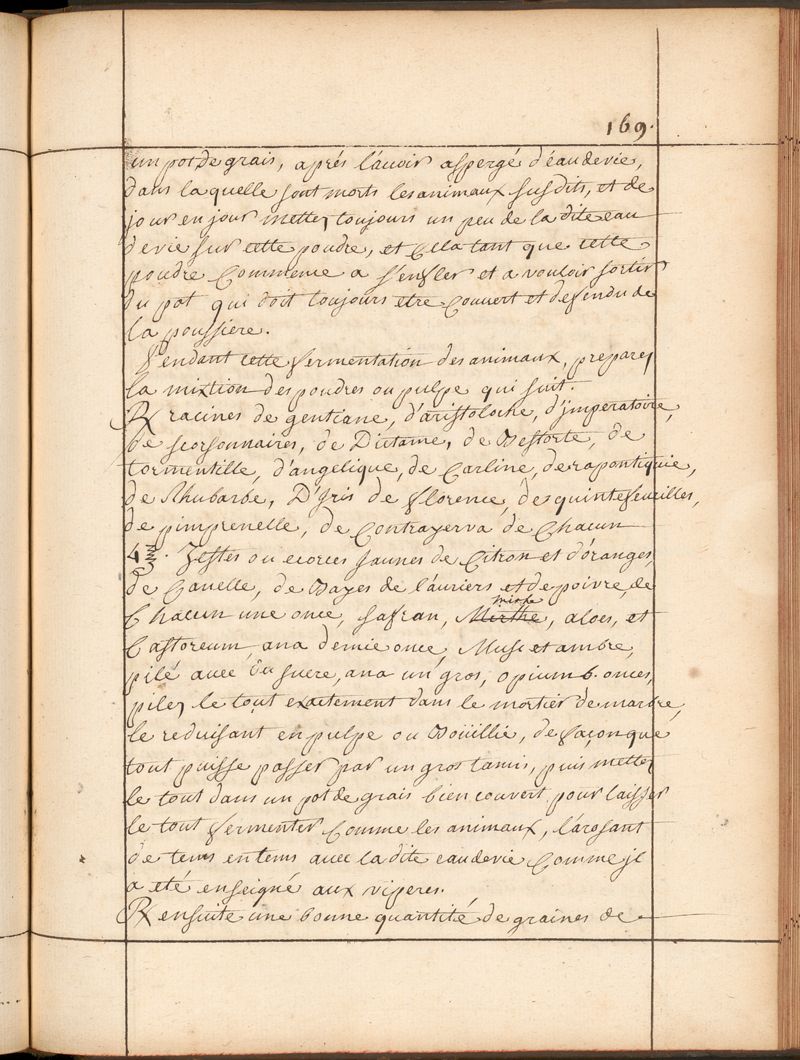 169.
un pot de grais, aprés l'avoir aspergé d'eau de vie,
dans laquelle sont morts les animaux susdits, et de
jour en jour mettez toujours un peu de la dite eau
de vie sur cette poudre, et cela tant que cette
poudre commence a s'enfler et a vouloir sortir
du pot qui doit toujours etre couvert et defendu de
la poussiere.
Pendant cette fermentation des animaux, preparez
la mixtion des poudres ou pulpe qui suit.
℞ racines de gentiane, d'aristoloche, d'jmperatoire,
de scorsonnaires, de Dictame, de Bestorte, de
tormentille, d'angelique, de Carline, de rapontiquie,
de Rhubarbe, D'Jris de florence, de quintefeuilles,
de pimprenelle, de Contrayerva de Chacun
4 ℥. Zestes ou ecorces jaunes de Citron et d'oranges,
de Canelle, de Bayes de l'auriers et de poivre, de
Chacun une once, safran, Mirthe mirhe, aloes, et
Castoreum, ana demie once, Musc et ambre,
pilé avec du sucre, ana un gros, opium 6. onces,
pilez le tout exactement dans le mortier de marbre,
le reduisant en pulpe ou Boüillie, de façon que
tout puisse passer par un gros tamis, puis mettez
le tout dans un pot de grais bien couvert pour laisser
le tout fermenter comme les animaux, l'arosant
de tems en tems avec la dite eau de vie comme jl
a eté enseigné aux viperes.
℞ ensuite une bonne quantité de graines de